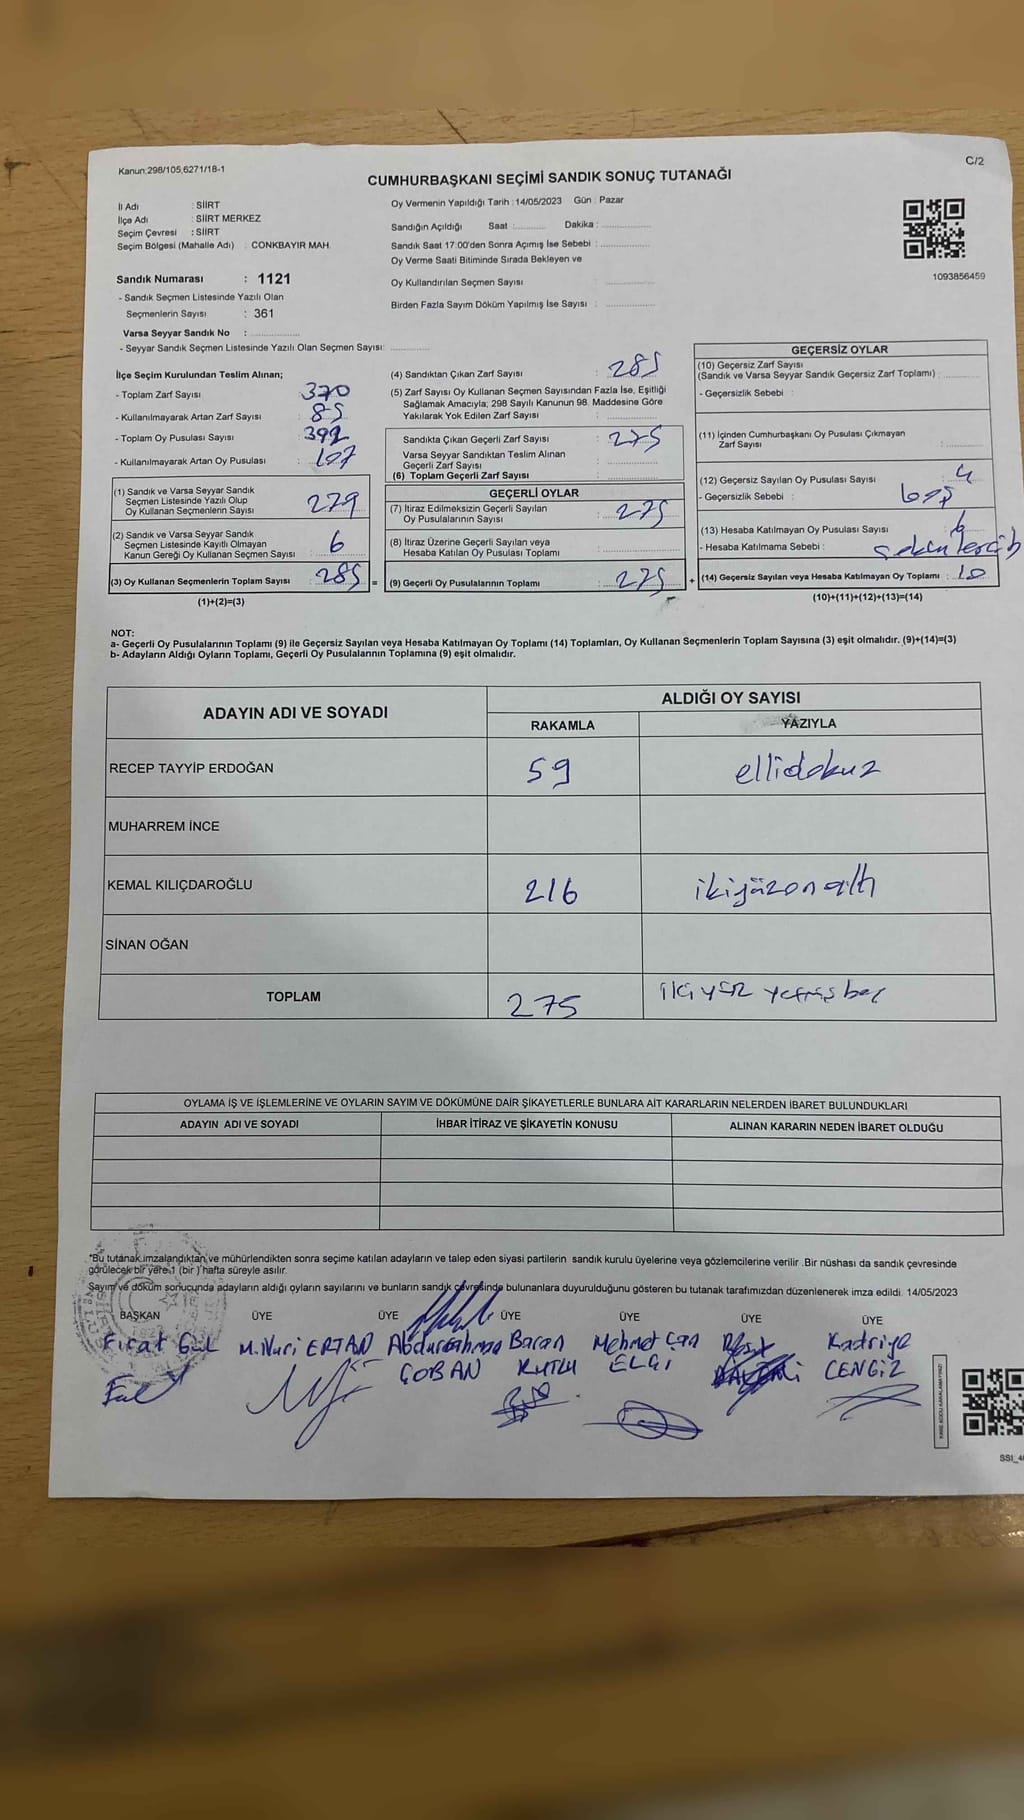 Kanun:298/105,6271/18-1
C/2
CUMHURBAŞKANI SEÇİMİ SANDIK SONUÇ TUTANAĞI
İl Adı : SİİRT
İlçe Adı : SİİRT MERKEZ
Seçim Çevresi : SİİRT
Seçim Bölgesi (Mahalle Adı) : CONKBAYIR MAH.
Sandık Numarası : 1121
- Sandık Seçmen Listesinde Yazılı Olan
Seçmenlerin Sayısı : 361
Varsa Seyyar Sandık No :
- Seyyar Sandık Seçmen Listesinde Yazılı Olan Seçmen Sayısı:
Oy Vermenin Yapıldığı Tarih : 14/05/2023 Gün : Pazar
Sandığın Açıldığı Saat : Dakika :
Sandık Saat 17:00'den Sonra Açımış İse Sebebi :
Oy Verme Saati Bitiminde Sırada Bekleyen ve
Oy Kullandırılan Seçmen Sayısı
Birden Fazla Sayım Döküm Yapılmış İse Sayısı :
1093856459
İlçe Seçim Kurulundan Teslim Alınan;
- Toplam Zarf Sayısı : 370
- Kullanılmayarak Artan Zarf Sayısı : 85
- Toplam Oy Pusulası Sayısı : 392
- Kullanılmayarak Artan Oy Pusulası : 107
(1) Sandık ve Varsa Seyyar Sandık
Seçmen Listesinde Yazılı Olup
Oy Kullanan Seçmenlerin Sayısı : 279
(2) Sandık ve Varsa Seyyar Sandık
Seçmen Listesinde Kayıtlı Olmayan
Kanun Gereği Oy Kullanan Seçmen Sayısı : 6
(3) Oy Kullanan Seçmenlerin Toplam Sayısı : 285 =
(1)+(2)=(3)
(4) Sandıktan Çıkan Zarf Sayısı : 285
(5) Zarf Sayısı Oy Kullanan Seçmen Sayısından Fazla İse, Eşitliği
Sağlamak Amacıyla; 298 Sayılı Kanunun 98. Maddesine Göre
Yakılarak Yok Edilen Zarf Sayısı :
Sandıkta Çıkan Geçerli Zarf Sayısı : 275
Varsa Seyyar Sandıktan Teslim Alınan
Geçerli Zarf Sayısı :
(6) Toplam Geçerli Zarf Sayısı :
GEÇERLİ OYLAR
(7) İtiraz Edilmeksizin Geçerli Sayılan
Oy Pusulalarının Sayısı : 275
(8) İtiraz Üzerine Geçerli Sayılan veya
Hesaba Katılan Oy Pusulası Toplamı :
(9) Geçerli Oy Pusulalarının Toplamı : 275 +
GEÇERSİZ OYLAR
(10) Geçersiz Zarf Sayısı
(Sandık ve Varsa Seyyar Sandık Geçersiz Zarf Toplamı) :
- Geçersizlik Sebebi :
(11) İçinden Cumhurbaşkanı Oy Pusulası Çıkmayan
Zarf Sayısı :
(12) Geçersiz Sayılan Oy Pusulası Sayısı : 4
- Geçersizlik Sebebi : boş
(13) Hesaba Katılmayan Oy Pusulası Sayısı : 6
- Hesaba Katılmama Sebebi :
(14) Geçersiz Sayılan veya Hesaba Katılmayan Oy Toplamı : 10
(10)+(11)+(12)+(13)=(14)
NOT:
a- Geçerli Oy Pusulalarının Toplamı (9) ile Geçersiz Sayılan veya Hesaba Katılmayan Oy Toplamı (14) Toplamları, Oy Kullanan Seçmenlerin Toplam Sayısına (3) eşit olmalıdır. (9)+(14)=(3)
b- Adayların Aldığı Oyların Toplamı, Geçerli Oy Pusulalarının Toplamına (9) eşit olmalıdır.
ADAYIN ADI VE SOYADI
ALDIĞI OY SAYISI
RAKAMLA YAZIYLA
RECEP TAYYİP ERDOĞAN 59 ellidokuz
MUHARREM İNCE
KEMAL KILIÇDAROĞLU 216 ikiyüzonaltı
SİNAN OĞAN
TOPLAM 275
OYLAMA İŞ VE İŞLEMLERİNE VE OYLARIN SAYIM VE DÖKÜMÜNE DAİR ŞİKAYETLERLE BUNLARA AİT KARARLARIN NELERDEN İBARET BULUNDUKLARI
ADAYIN ADI VE SOYADI İHBAR İTİRAZ VE ŞİKAYETİN KONUSU ALINAN KARARIN NEDEN İBARET OLDUĞU
*Bu tutanak imzalandıktan ve mühürlendikten sonra seçime katılan adayların ve talep eden siyasi partilerin sandık kurulu üyelerine veya gözlemcilerine verilir .Bir nüshası da sandık çevresinde
görülecek bir yere 1 (bir ) hafta süreyle asılır.
Sayım ve döküm sonucunda adayların aldığı oyların sayılarını ve bunların sandık çevresinde bulunanlara duyurulduğunu gösteren bu tutanak tarafımızdan düzenlenerek imza edildi. 14/05/2023
BAŞKAN ÜYE ÜYE ÜYE ÜYE ÜYE ÜYE
Fırat Gül M.Nuri ERTAN Abdurrahman Baran Mehmet Can Kadriye
ÇOBAN KUTLU ELÇİ CENGİZ